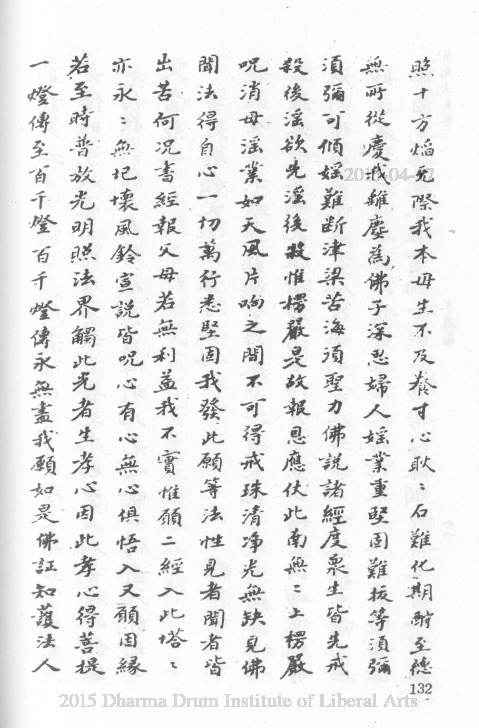 照十方焰無際我本毋生不及養寸心耿〻石難化期酧至德
無所從慶我雖塵為佛子深思婦人婬業重堅固難拔等須彌
須彌可傾婬難断津梁苦海須聖力佛說諸經度衆生皆先戒
殺後淫欲先淫後殺惟楞嚴是故報恩應伏此南無〻上楞嚴
呪消母淫業如天風片响之間不可得戒珠清淨光無缺見佛
聞法得自心一切萬行悉堅固我發此願等法性見者聞者皆
出苦何况書經報父母若無利益我不實惟願二經入此塔〻
亦永〻無圮壞風鈴宣說皆呪心有心無心俱悟入又願因緣
若至時普放光明照法界觸此光者生孝心因此孝心得菩提
一燈傳至百千燈百千燈傳永無盡我願如是佛証知護法人
132
2015 Dharma Drum Institute of Liberal Arts